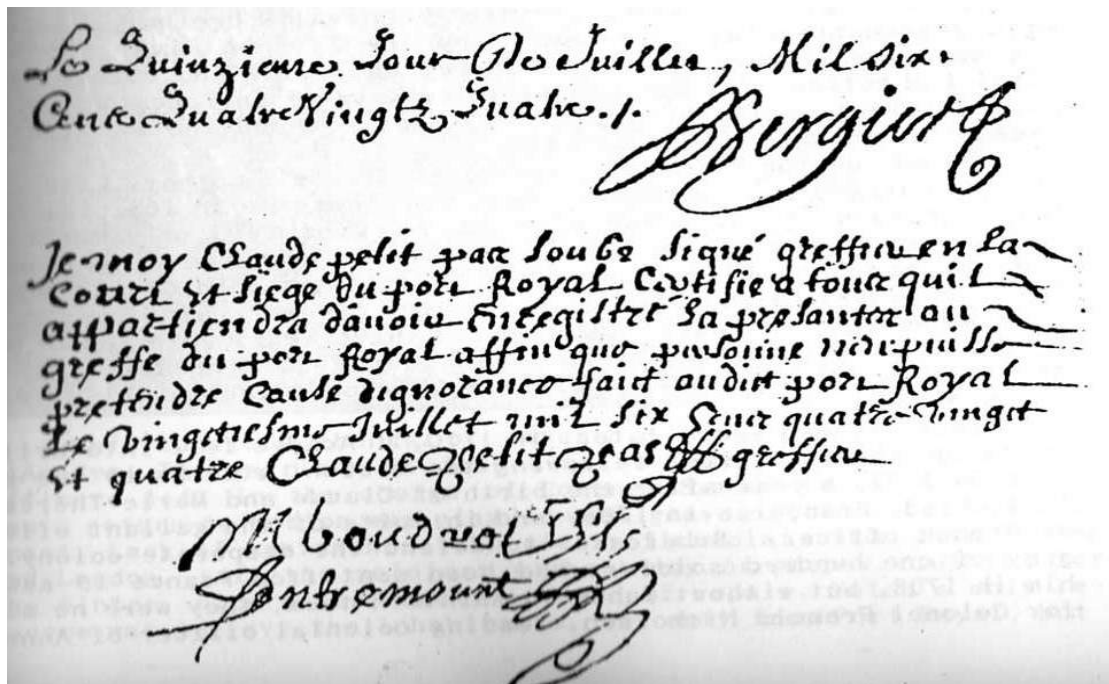 Le Quinzieme Jour De Juillet, Mil Six
Cents Quatre Vingtz Quatre ./.
Bergier
Je moy Claude petit par soubz signé greffier en la
Court et siege du port Royal Certifie a tous quil
appartiendra d'avoir Enregistré la presante au
greffe du port Royal affin que personne nen puisse
prettendre Cause dignorance faict audict port Royal
Le vingtiesme Juillet mil six Cent quatre vingt
et quatre Claude petit greffier
M boudrot
Dentremount